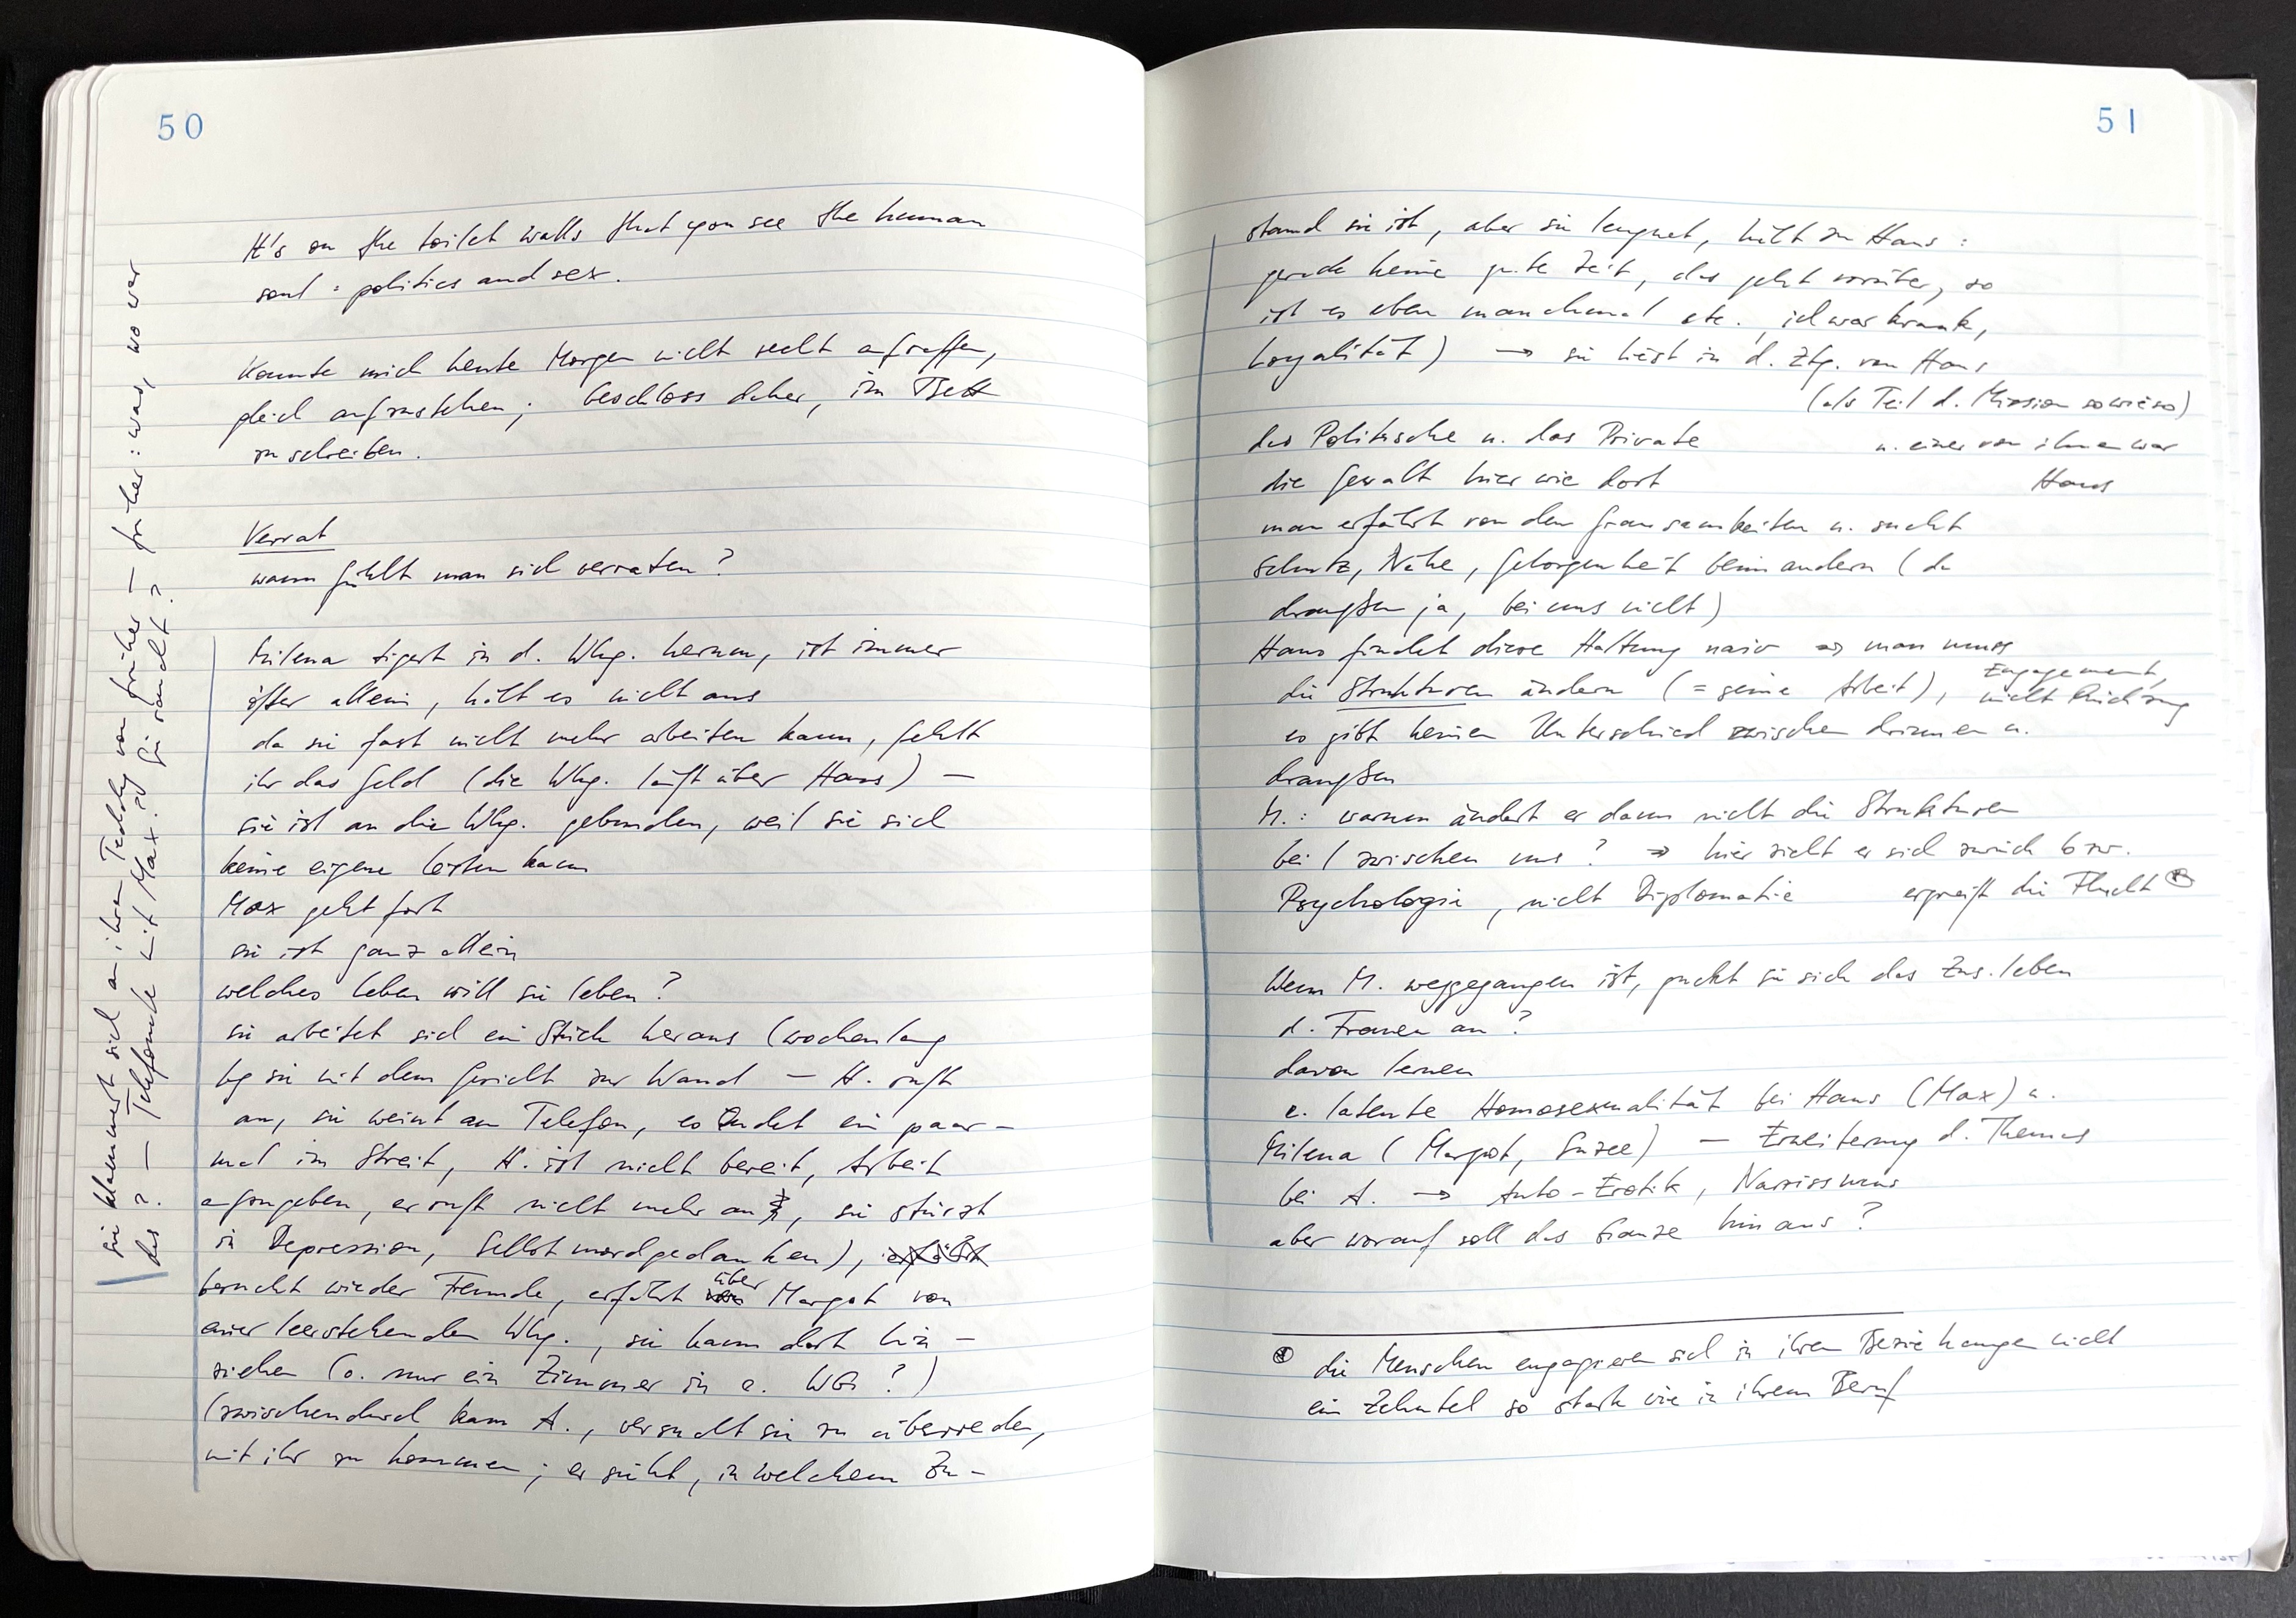 50
It's on the toilet walls that you see the human
soul: politics and sex.
Konnte mich heute Morgen nicht recht aufraffen,
gleich aufzustehen; beschloss daher, im Bett
zu schreiben.
Verrat
wann fühlt man sich verraten?
Milena tigert in d. Whg. herum, ist immer
öfter allein, hält es nicht aus
da sie fast nicht mehr arbeiten kann, fehlt
ihr das Geld (die Whg. läuft über Hans) –
sie ist an die Whg. gebunden, weil sie sich
keine eigene leisten kann
Max geht fort
sie ist ganz allein
welches Leben will sie leben?
sie arbeitet sich ein Stück heraus (wochenlang
lag sie mit dem Gesicht zur Wand – H. ruft
an, sie weint am Telefon, es endet ein paar-
mal im Streit, H. ist nicht bereit, Arbeit
aufzugeben, er ruft nicht mehr an, sie stürzt
in Depression, Selbstmordgedanken), erfährt
besucht wieder Freunde, erfährt von über Margot von
einer leerstehenden Whg., sie kann dort hin-
ziehen (o. nur ein Zimmer in e. WG?)
(zwischendurch kam A., versucht sie zu überreden,
mit ihr zu kommen; er sieht, in welchem Zu-
sie klammert sich an ihren Teddy von früher – früher: was, wo war
das? – Telefonate mit Max? sie raucht?
51
stand sie ist, aber sie leugnet, hält zu Hans:
gerade keine gute Zeit, das geht vorüber, so
ist es eben manchmal etc., ich war krank,
Loyalität) → sie liest in d. Ztg. von Hans
(als Teil d. Mission sowieso)
das Politische u. das Private
u. einer von ihnen war
Hans
die Gewalt hier wie dort
man erfährt von den Grausamkeiten u. sucht
Schutz, Nähe, Geborgenheit beim andern (da
draußen ja, bei uns nicht)
Hans findet diese Haltung naiv → man muss
die Strukturen ändern (= seine Arbeit), Engagement,
nicht Rückzug
es gibt keinen Unterschied zwischen drinnen u.
draußen
M.: warum ändert er dann nicht die Strukturen
bei / zwischen uns? → hier zieht er sich zurück bzw.
Psychologie, nicht Diplomatie ergreift die Flucht ⊛
Wenn M. weggegangen ist, guckt sie sich das Zus.leben
d. Frauen an?
davon lernen
e. latente Homosexualität bei Hans (Max) u.
Milena (Margot, Suzee) – Erweiterung d. Themas
bei A. → Auto-Erotik, Narzissmus
aber worauf soll das Ganze hinaus?
⊛ die Menschen engagieren sich in ihren Beziehungen nicht
ein Zehntel so stark wie in ihrem Beruf